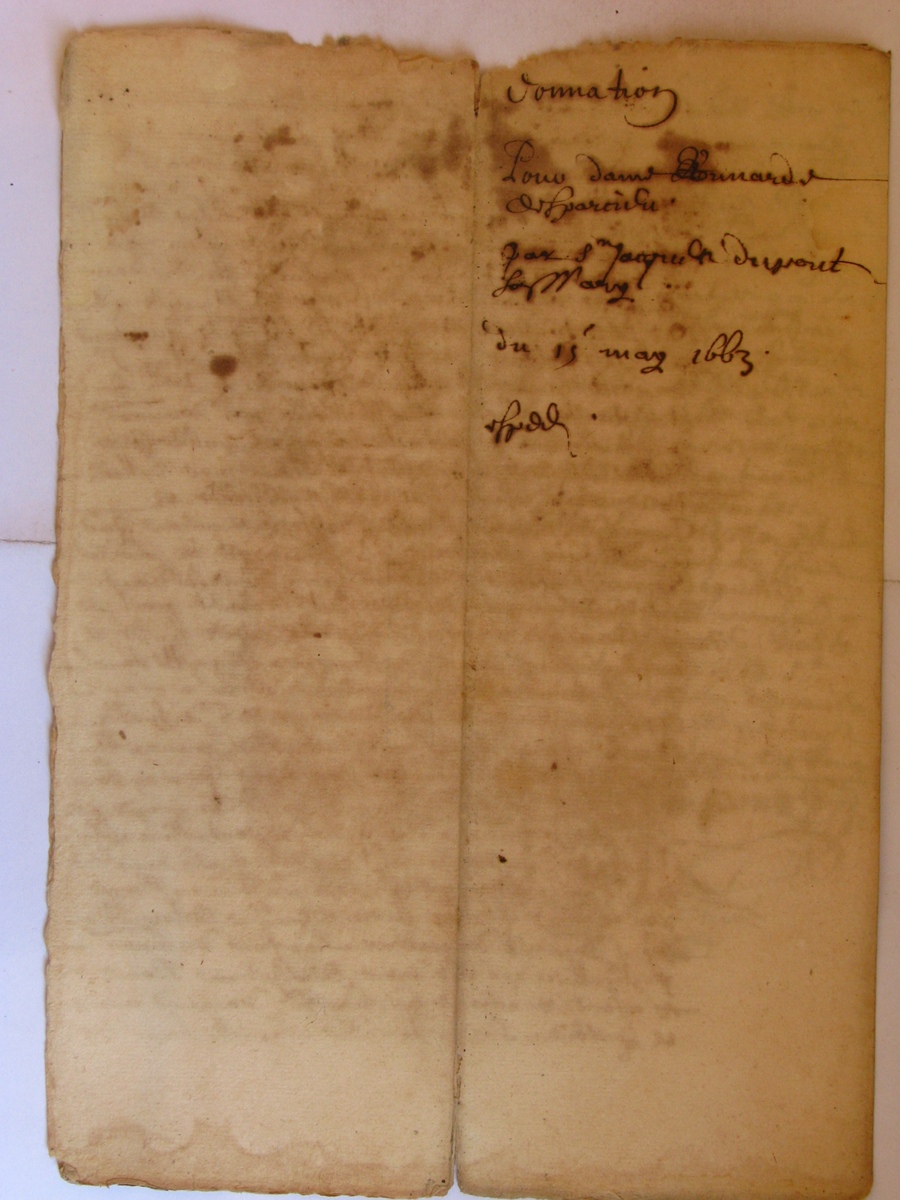 donnation
Pour dame Bonnarde
desparcieu
par Sr Jacques dupont
son Mary
du 15 may 1663
expedd